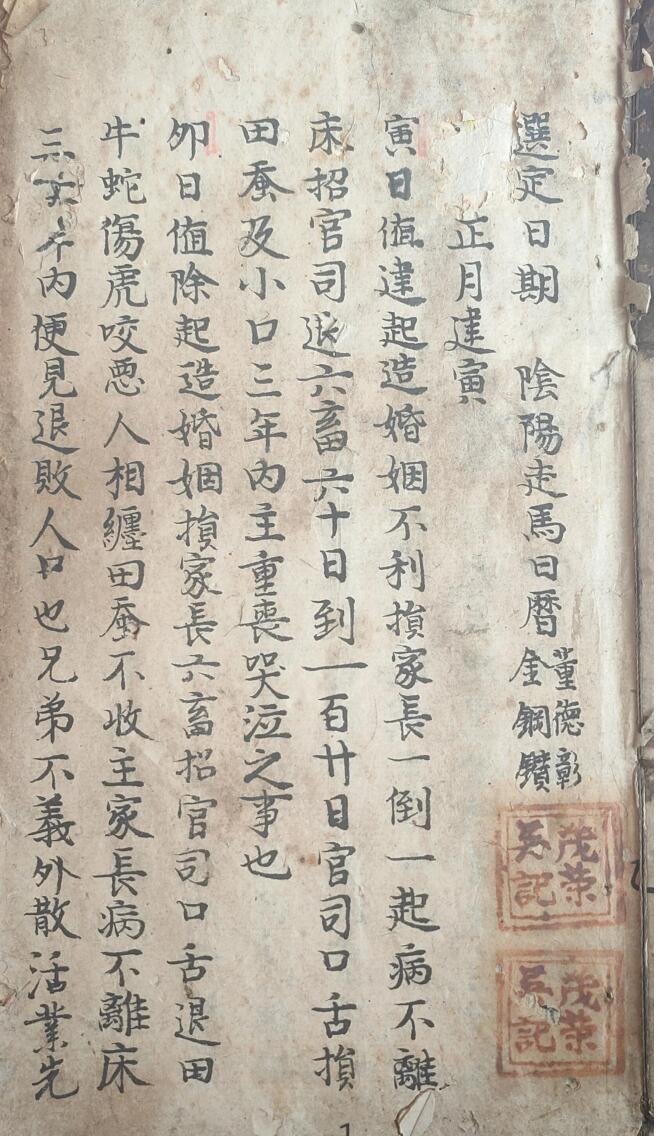 選定日期 陰陽走馬日曆 董德彰
金鋼鑽
茂榮
吳記
茂榮
吳記
正月建寅
寅日值建起造婚姻不利損家長一倒一起病不離
床招官司退六畜六十日到一百廿日官司口舌損
田蚕及小口三年內主重喪哭泣之事也
卯日值除起造婚姻損家長六畜招官司口舌退田
牛蛇傷虎咬惡人相纏田蚕不收主家長病不離床
三六年內便見退敗人口也兄弟不義外散活業先
1